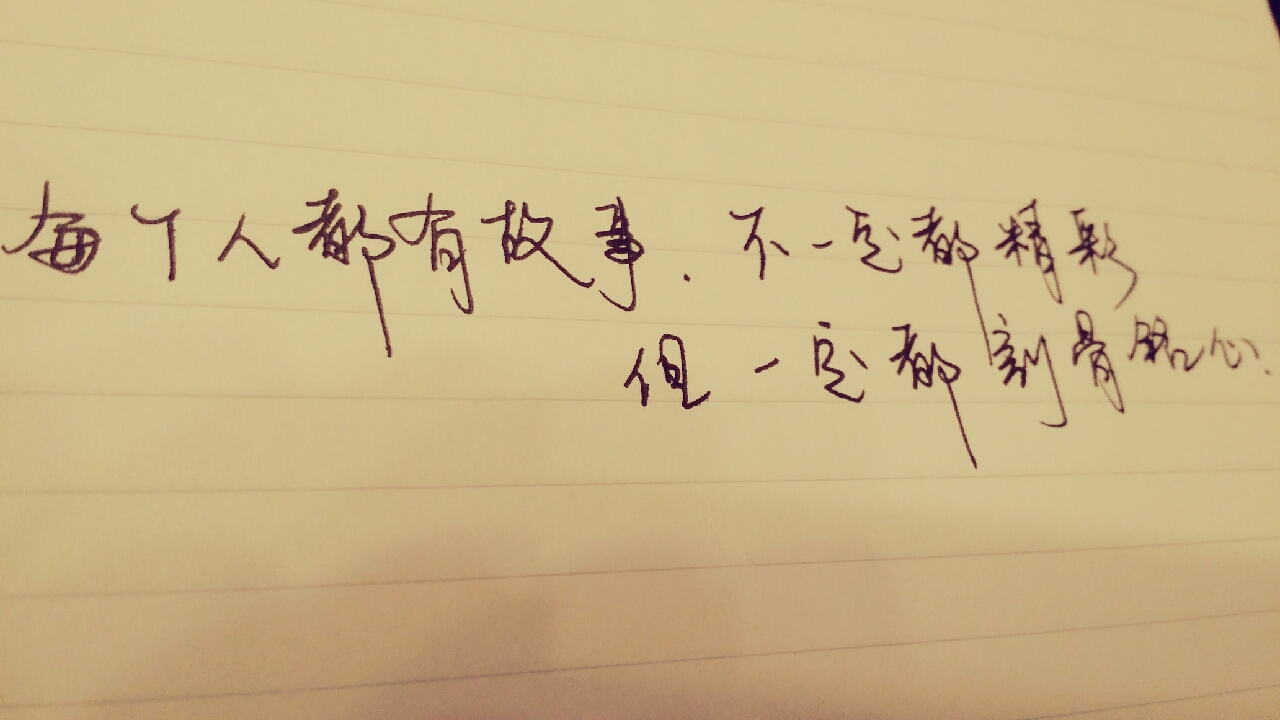 每个人都有故事.不一定都精彩
但一定都刻骨铭心.